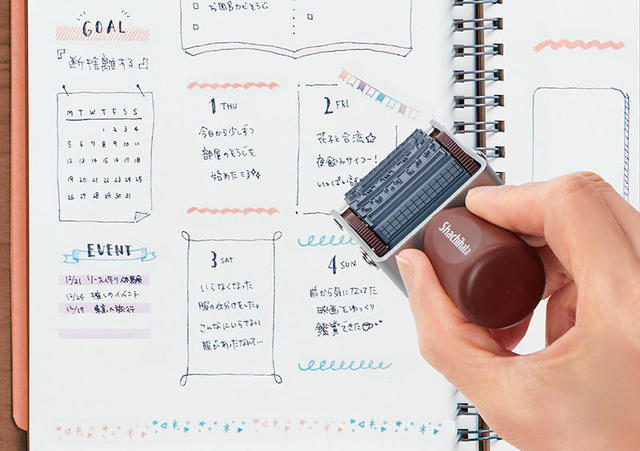 GOAL
『断捨離する』
M T W T F S S
1 2 3 4
5 6 7 8 9 10 11
12 13 14 15 16 17 18
19 20 21 22 23 24 25
26 27 28 29 30 31
EVENT
リース作り体験会
12/24 推しのイベント
旅行
1 THU
今日から少しずつ
部屋のそうじを
始めた
2 FRI
花子と合流☆
夜飲みサイコー!
いっぱい
3 SAT
いらなくなった
服の仕分けをした。
こんなにいらない
服があったなんて…
4 SUN
前から気になってた
映画をゆっくり
鑑賞できた
Shachihata